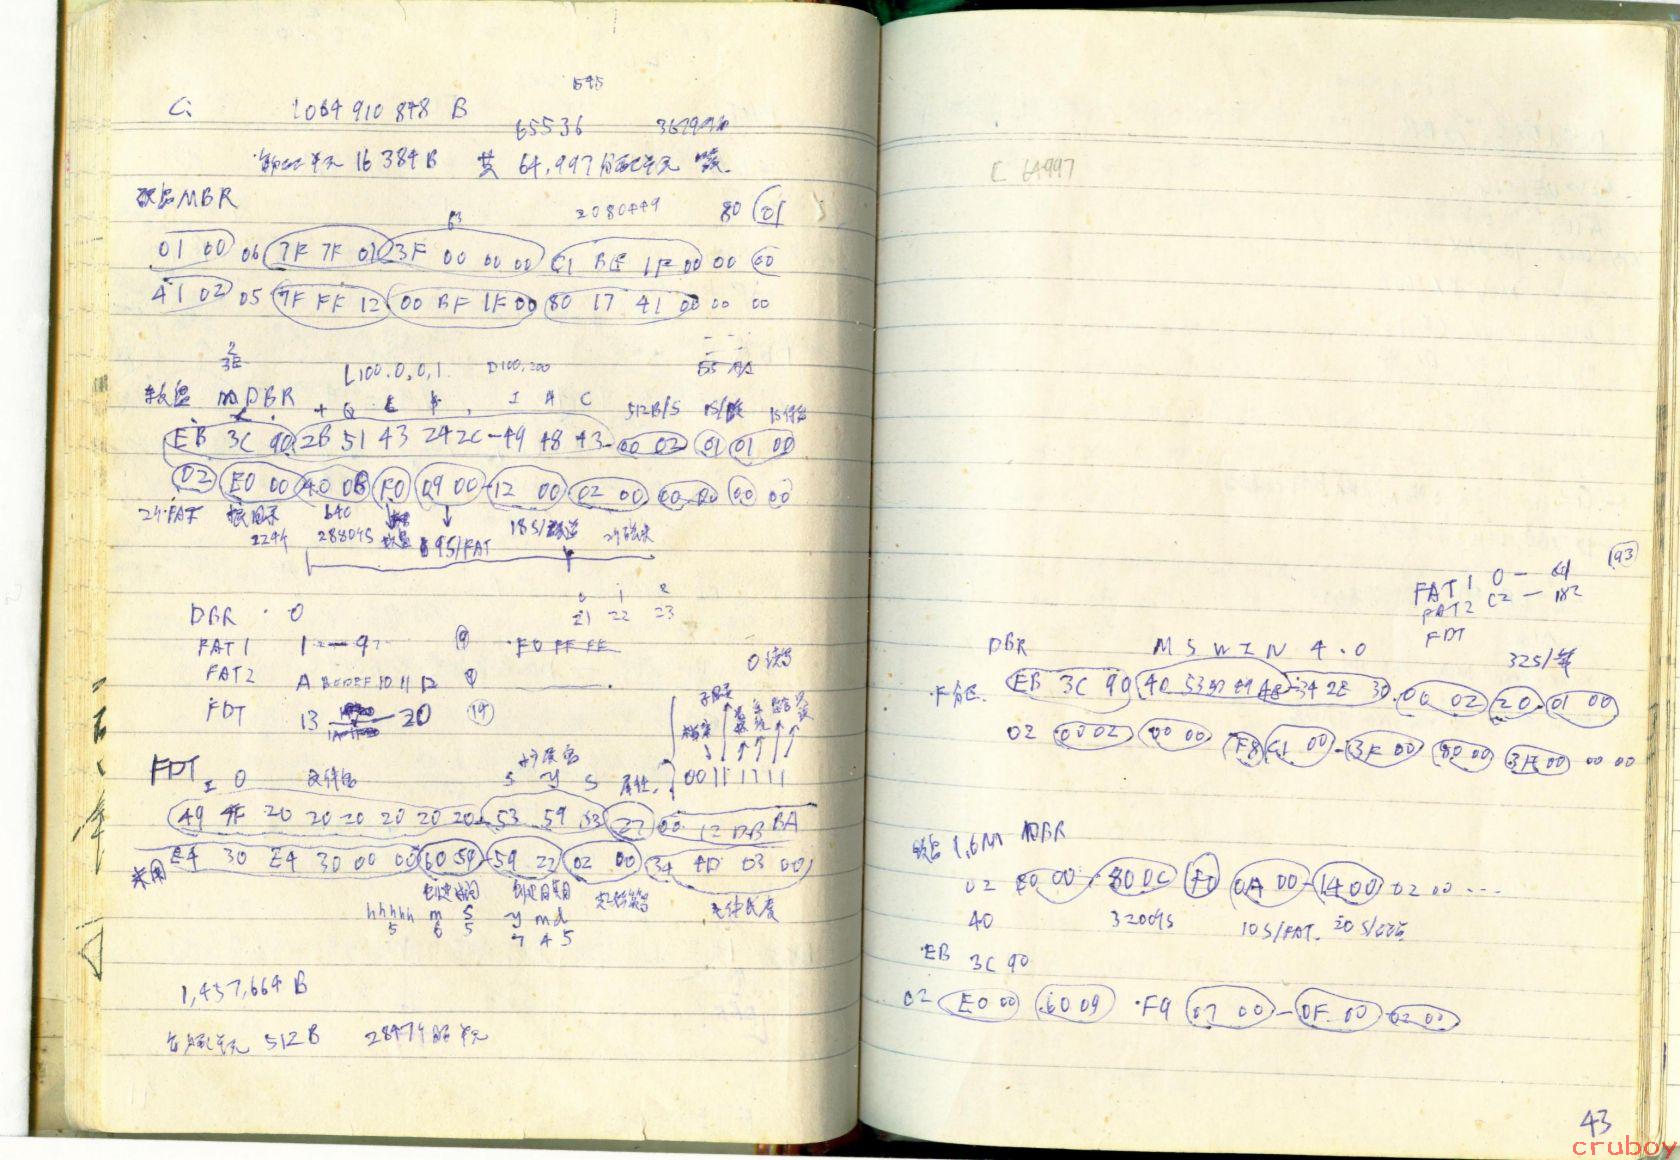 C:
1064 910 848 B
65536
分配单元 16 384 B 共 64,997 分配单元
硬盘MBR
63
2080449
80 01
01 00 06 7F 7F 01 3F 00 00 00 C1 BE 1F 00 00 00
41 02 05 7F FF 12 00 BF 1F 00 80 17 41 00 00 00
L100.0,0,1 D100,200
55 AA
软盘 DBR + Q C I H C 512B/S 1S/簇
EB 3C 90 2B 51 43 24 2C - 49 48 43 - 00 02 01 01 00
02 E0 00 40 0B F0 09 00 - 12 00 02 00 00 00 00 00
2个FAT 根目录 224个 640 2880个S 软盘 9S/FAT 18S/磁道 2个磁头
DBR 0
0 1 2
21 22 23
FAT1 1 — 9 9 F0 FF FF
FAT2 A B C D E F 10 11 12 9
FDT 13 — 20 14
0读写
FDT I O 文件名 扩展名 S Y S 属性 00111111
49 4F 20 20 20 20 20 20 - 53 59 53 27 00 12 DB BA
未用 E4 30 E4 30 00 00 60 59 - 59 22 02 00 34 4D 03 00
创建时间 创建日期 起始簇号 文件长度
hhhhh m s y m d
5 6 5 7 4 5
1,457,664 B
分配单元 512 B 2847个分配单元
C 64997
193
FAT1 0 —
FAT2 C2 — 182
FDT
DBR MSWIN 4.0 32S/簇
EB 3C 90 40 53 57 49 4E - 34 2E 30 00 02 20 01 00
02 00 02 00 00 F8 C1 00 - 3F 00 80 00 3F 00 00 00
软盘 1.6M DBR
02 E0 00 - 80 0C F0 0A 00 - 14 00 02 00 ...
40 3200个S 10S/FAT. 20 S/磁道
EB 3C 90
02 E0 00 60 09 F9 07 00 - 0F 00 - 02 00
43
cruboy